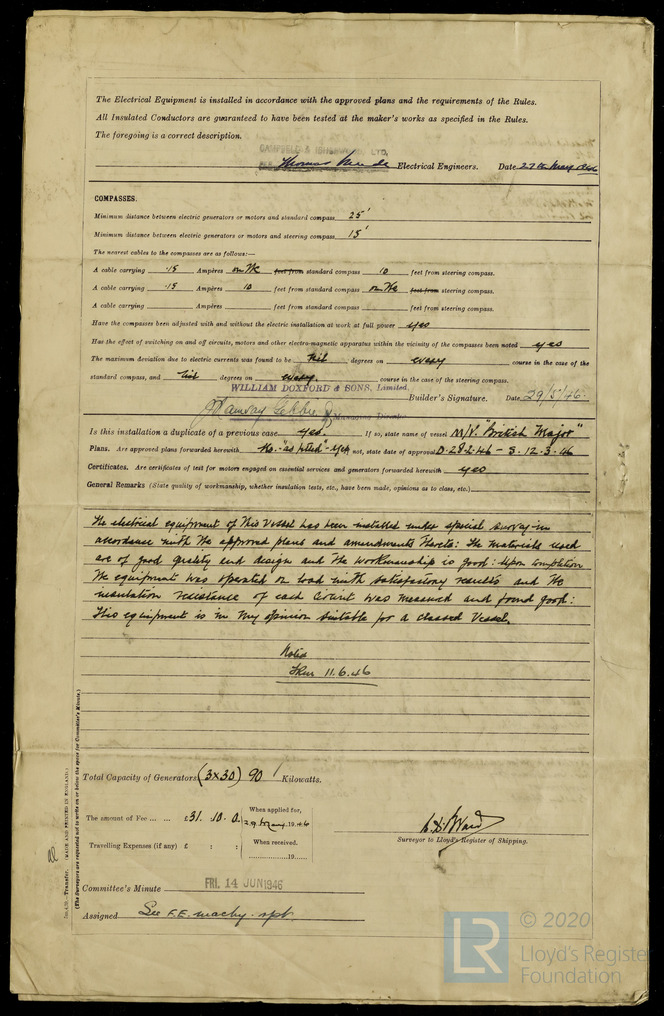 The Electrical Equipment is installed in accordance with the approved plans and the requirements of the Rules.
All Insulated Conductors are guaranteed to have been tested at the maker's works as specified in the Rules.
The foregoing is a correct description.
CAMPBELL & ISHERWOOD, LTD.
Thomas Meade Electrical Engineers. Date 27th May 1946
COMPASSES.
Minimum distance between electric generators or motors and standard compass 25'
Minimum distance between electric generators or motors and steering compass 15'
The nearest cables to the compasses are as follows:—
A cable carrying .15 Ampères on the feet from standard compass 10 feet from steering compass.
A cable carrying .15 Ampères 10 feet from standard compass on the feet from steering compass.
A cable carrying Ampères feet from standard compass feet from steering compass.
Have the compasses been adjusted with and without the electric installation at work at full power yes
Has the effect of switching on and off circuits, motors and other electro-magnetic apparatus within the vicinity of the compasses been noted yes
The maximum deviation due to electric currents was found to be Nil degrees on every course in the case of the
standard compass, and Nil degrees on every course in the case of the steering compass.
WILLIAM DOXFORD & SONS, Limited.
Ramsay Gebbie Managing Director Builder's Signature. Date 29/5/46.
Is this installation a duplicate of a previous case yes. If so, state name of vessel M/V. "British Major"
Plans. Are approved plans forwarded herewith No. "as fitted" - yes not, state date of approval 28.2.46 - 12.3.46
Certificates. Are certificates of test for motors engaged on essential services and generators forwarded herewith yes
General Remarks (State quality of workmanship, whether insulation tests, etc., have been made, opinions as to class, etc.)
The electrical equipment of this vessel has been installed under special survey in
accordance with the approved plans and amendments thereto: The materials used
are of good quality and design and the workmanship is good: Upon completion
the equipment was operated on load with satisfactory results and the
insulation resistance of each circuit was measured and found good:
This equipment is in my opinion suitable for a classed vessel.
Noted
11.6.46
Total Capacity of Generators (3x30) 90 Kilowatts.
The amount of Fee ... ... £31. 10. 0.
When applied for,
29 May 1946
Travelling Expenses (if any) £ : :
When received.
19
Surveyor to Lloyd's Register of Shipping.
Committee's Minute FRI. 14 JUN 1946
Assigned See F.E. machy. rpt.
Transfer. (MADE AND PRINTED IN ENGLAND.)
(The Surveyors are requested not to write on or below the space for Committee's Minute.)
LR © 2020
Lloyd's Register
Foundation